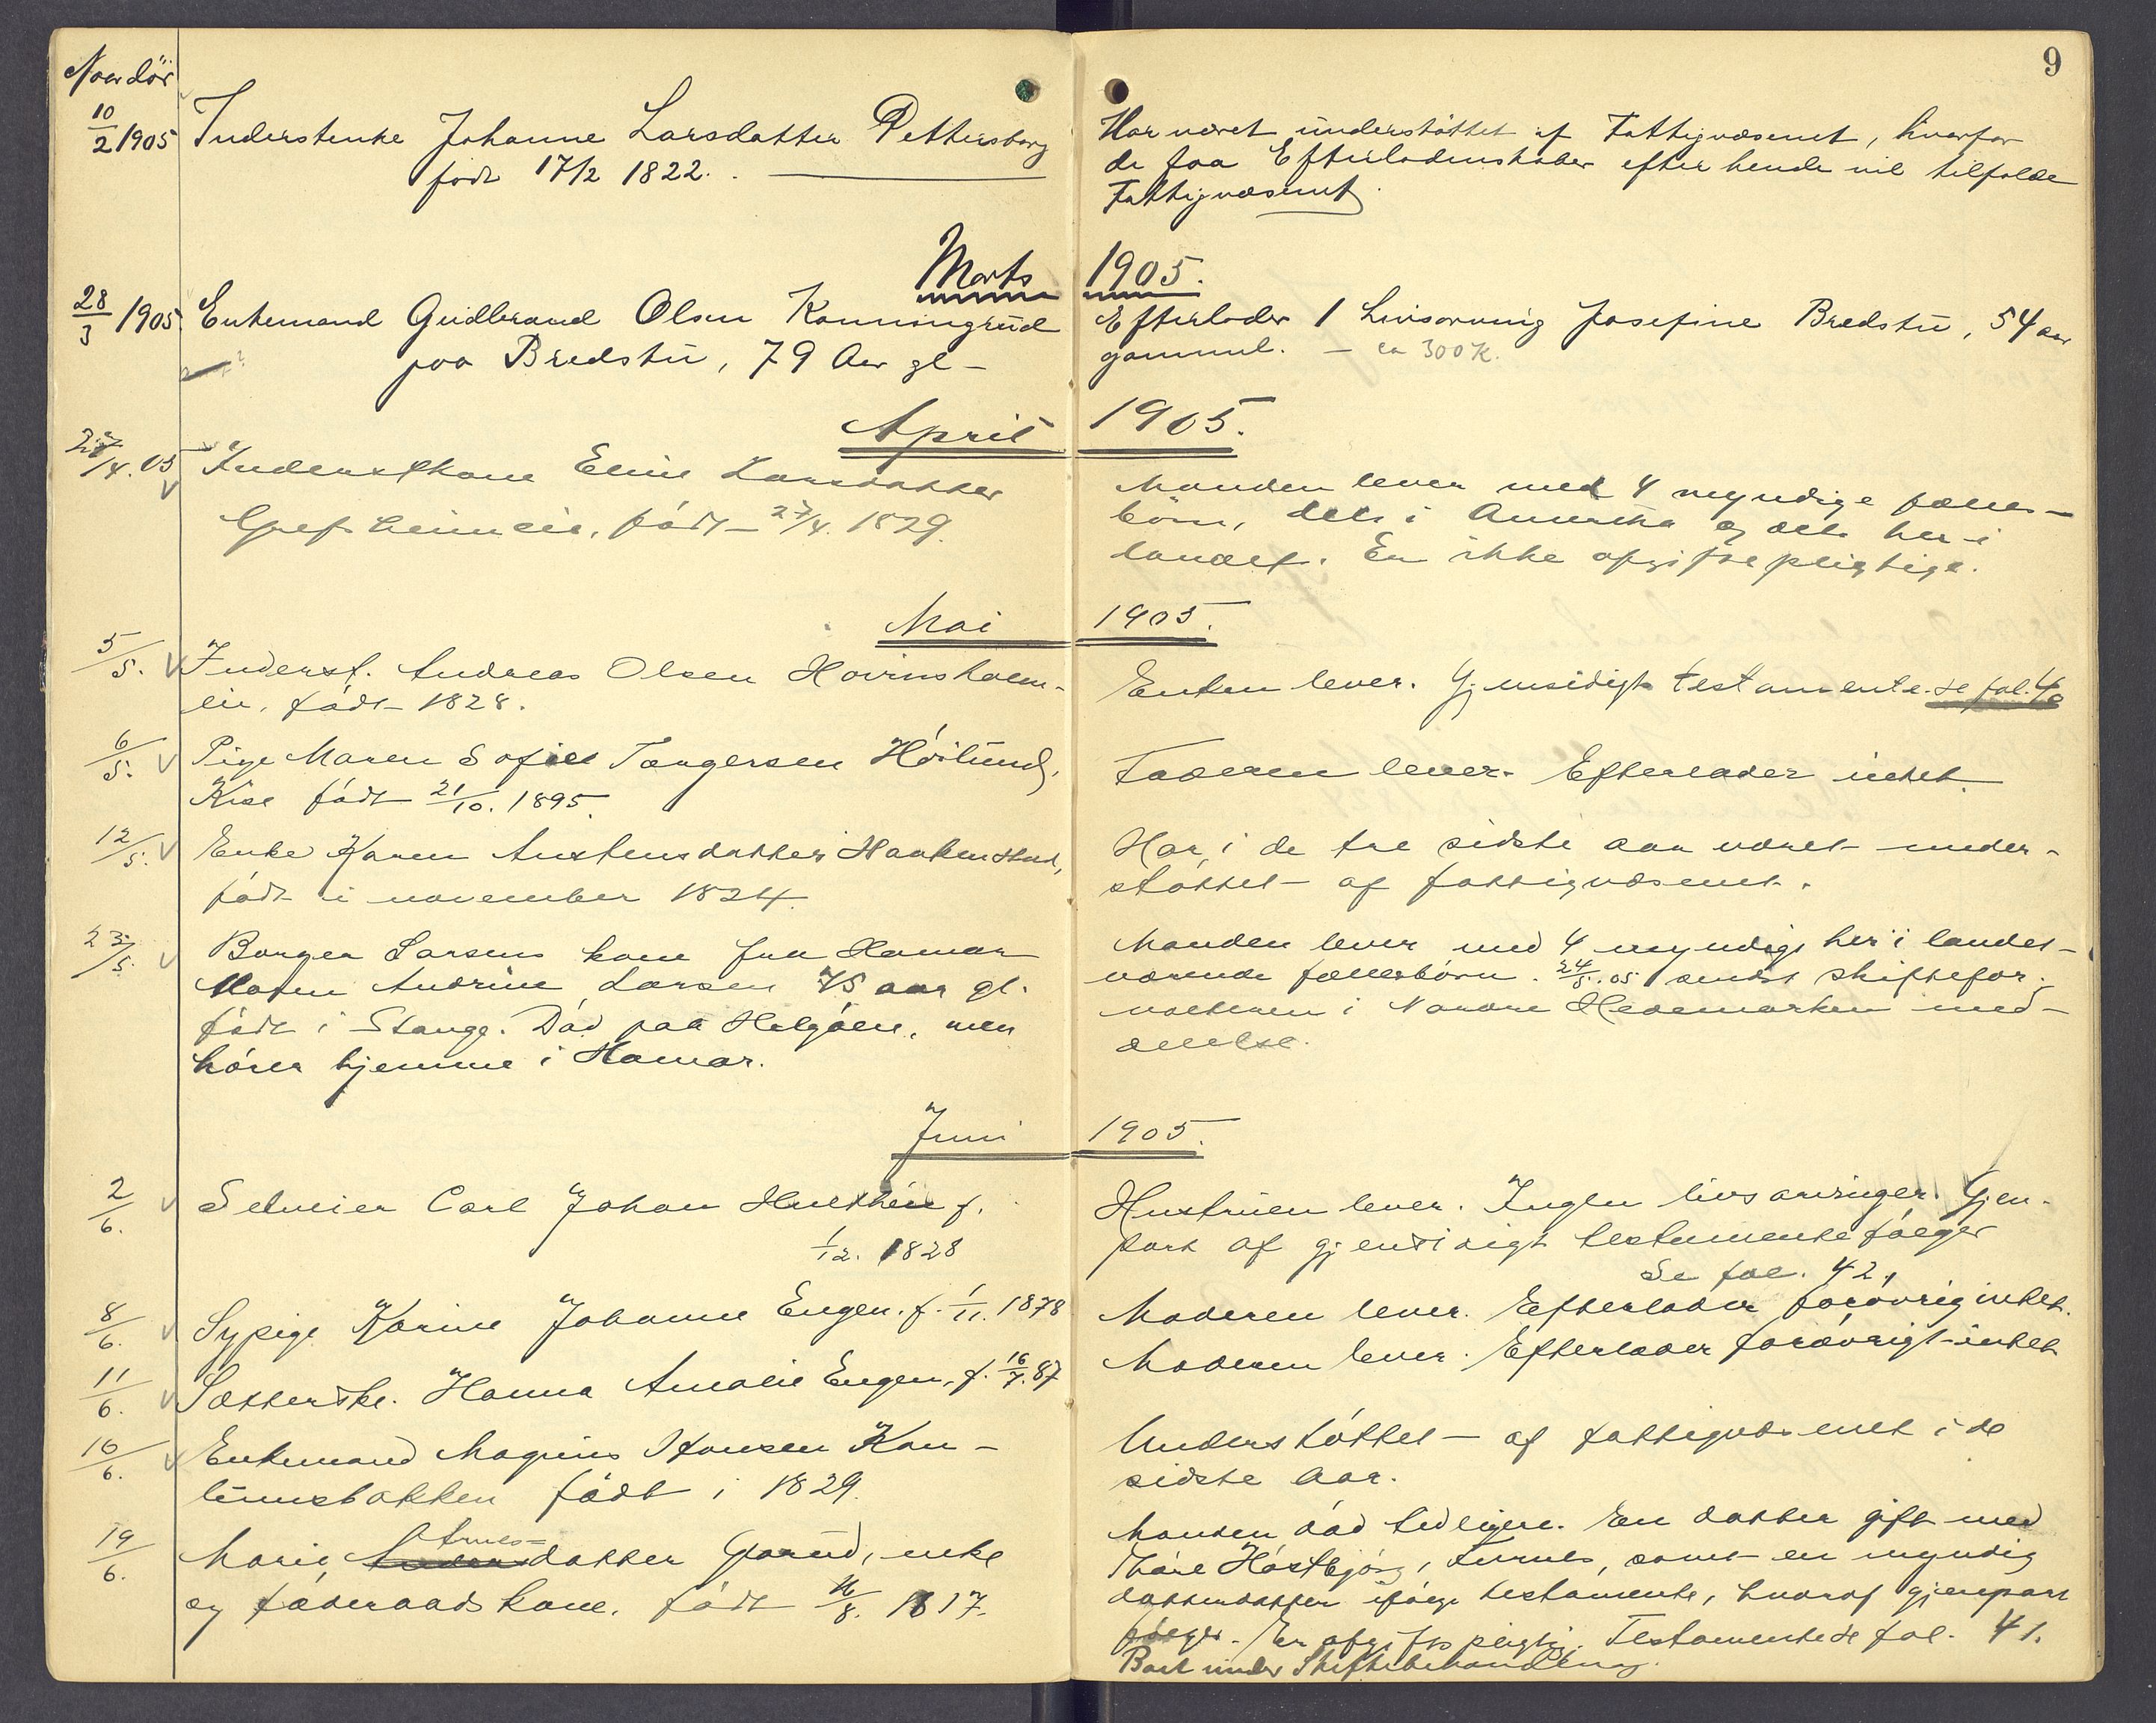 9
Naar död
10/2 1905 Inderstenke Johanne Larsdatter Pettersborg
født 17/2 1822.
Har været understøttet af Fattigvæsenet, hvorfor
de faa Efterladenskaber efter hende vil tilfalde
Fattigvæsenet.
Marts 1905.
28/3 1905 Enkemand Gudbrand Olsen Konningrud
paa Bredstu, 79 Aar gl -
Efterlader 1 Livsarving Josefine Bredstu, 54 aar
gammel. - ca 300 K.
April 1905.
27/4. 05 Inderstkone Eline Larsdatter
Grefsheimeie, født 27/4. 1829.
Manden lever med 4 myndige fælles-
börn, dels i Amerika og dels her i
landet. Er ikke afgiftspligtige.
Mai 1905.
5/5. Inderst. Andreas Olsen Hovinsholm-
eie, født 1828.
Enken lever. Gjensidigt testamente. se fol. 40
6/5. Pige Maren Sofie Torgersen Höilund,
Kise født 21/10. 1895.
Faderen lever. Efterlader intet.
12/5. Enke Karen Austensdatter Haakenstad,
født i november 1824.
Har i de tre sidste aar været under-
støttet af fattigvæsenet.
23/5. Borger Larsens kone fra Hamar
Maren Andrine Larsen 75 aar gl.
født i Stange. Død paa Helgøen, men
hører hjemme i Hamar.
Manden lever med 4 myndige her i landet
værende fællesbørn. 24/5. 05 sendt skiftefor-
valteren i Nordre Hedemarken med-
delelse.
Juni 1905.
2/6. Selveier Carl Johan Hulthin f.
1/12. 1828
Hustruen lever. Ingen livsarvinger. Gjen-
part af gjensidigt testamente følger
Se fol. 42.
8/6. Sypige Karine Johanne Engen. f. 1/11. 1878
Moderen lever. Efterlader forøvrig intet.
11/6. Sætterske. Hanna Amalie Engen, f. 16/7. 87
Moderen lever. Efterlader forøvrigt intet
16/6. Enkemand Magnus Hansen Kon-
lunsbakken født i 1829.
Understøttet af fattigvæsenet i de
sidste Aar.
19/6. Marie Arnesdatter Garud, enke
og føderaadskone. født 16/8. 1817.
Manden død tidligere. En datter gift med
Thore Høstbjør, Furnes, samt en myndig
datterdatter ifølge testamente, hvoraf gjenpart
følger. Er afgiftspligtig. Testamente se fol. 41.
Boet under Skiftebehandling.